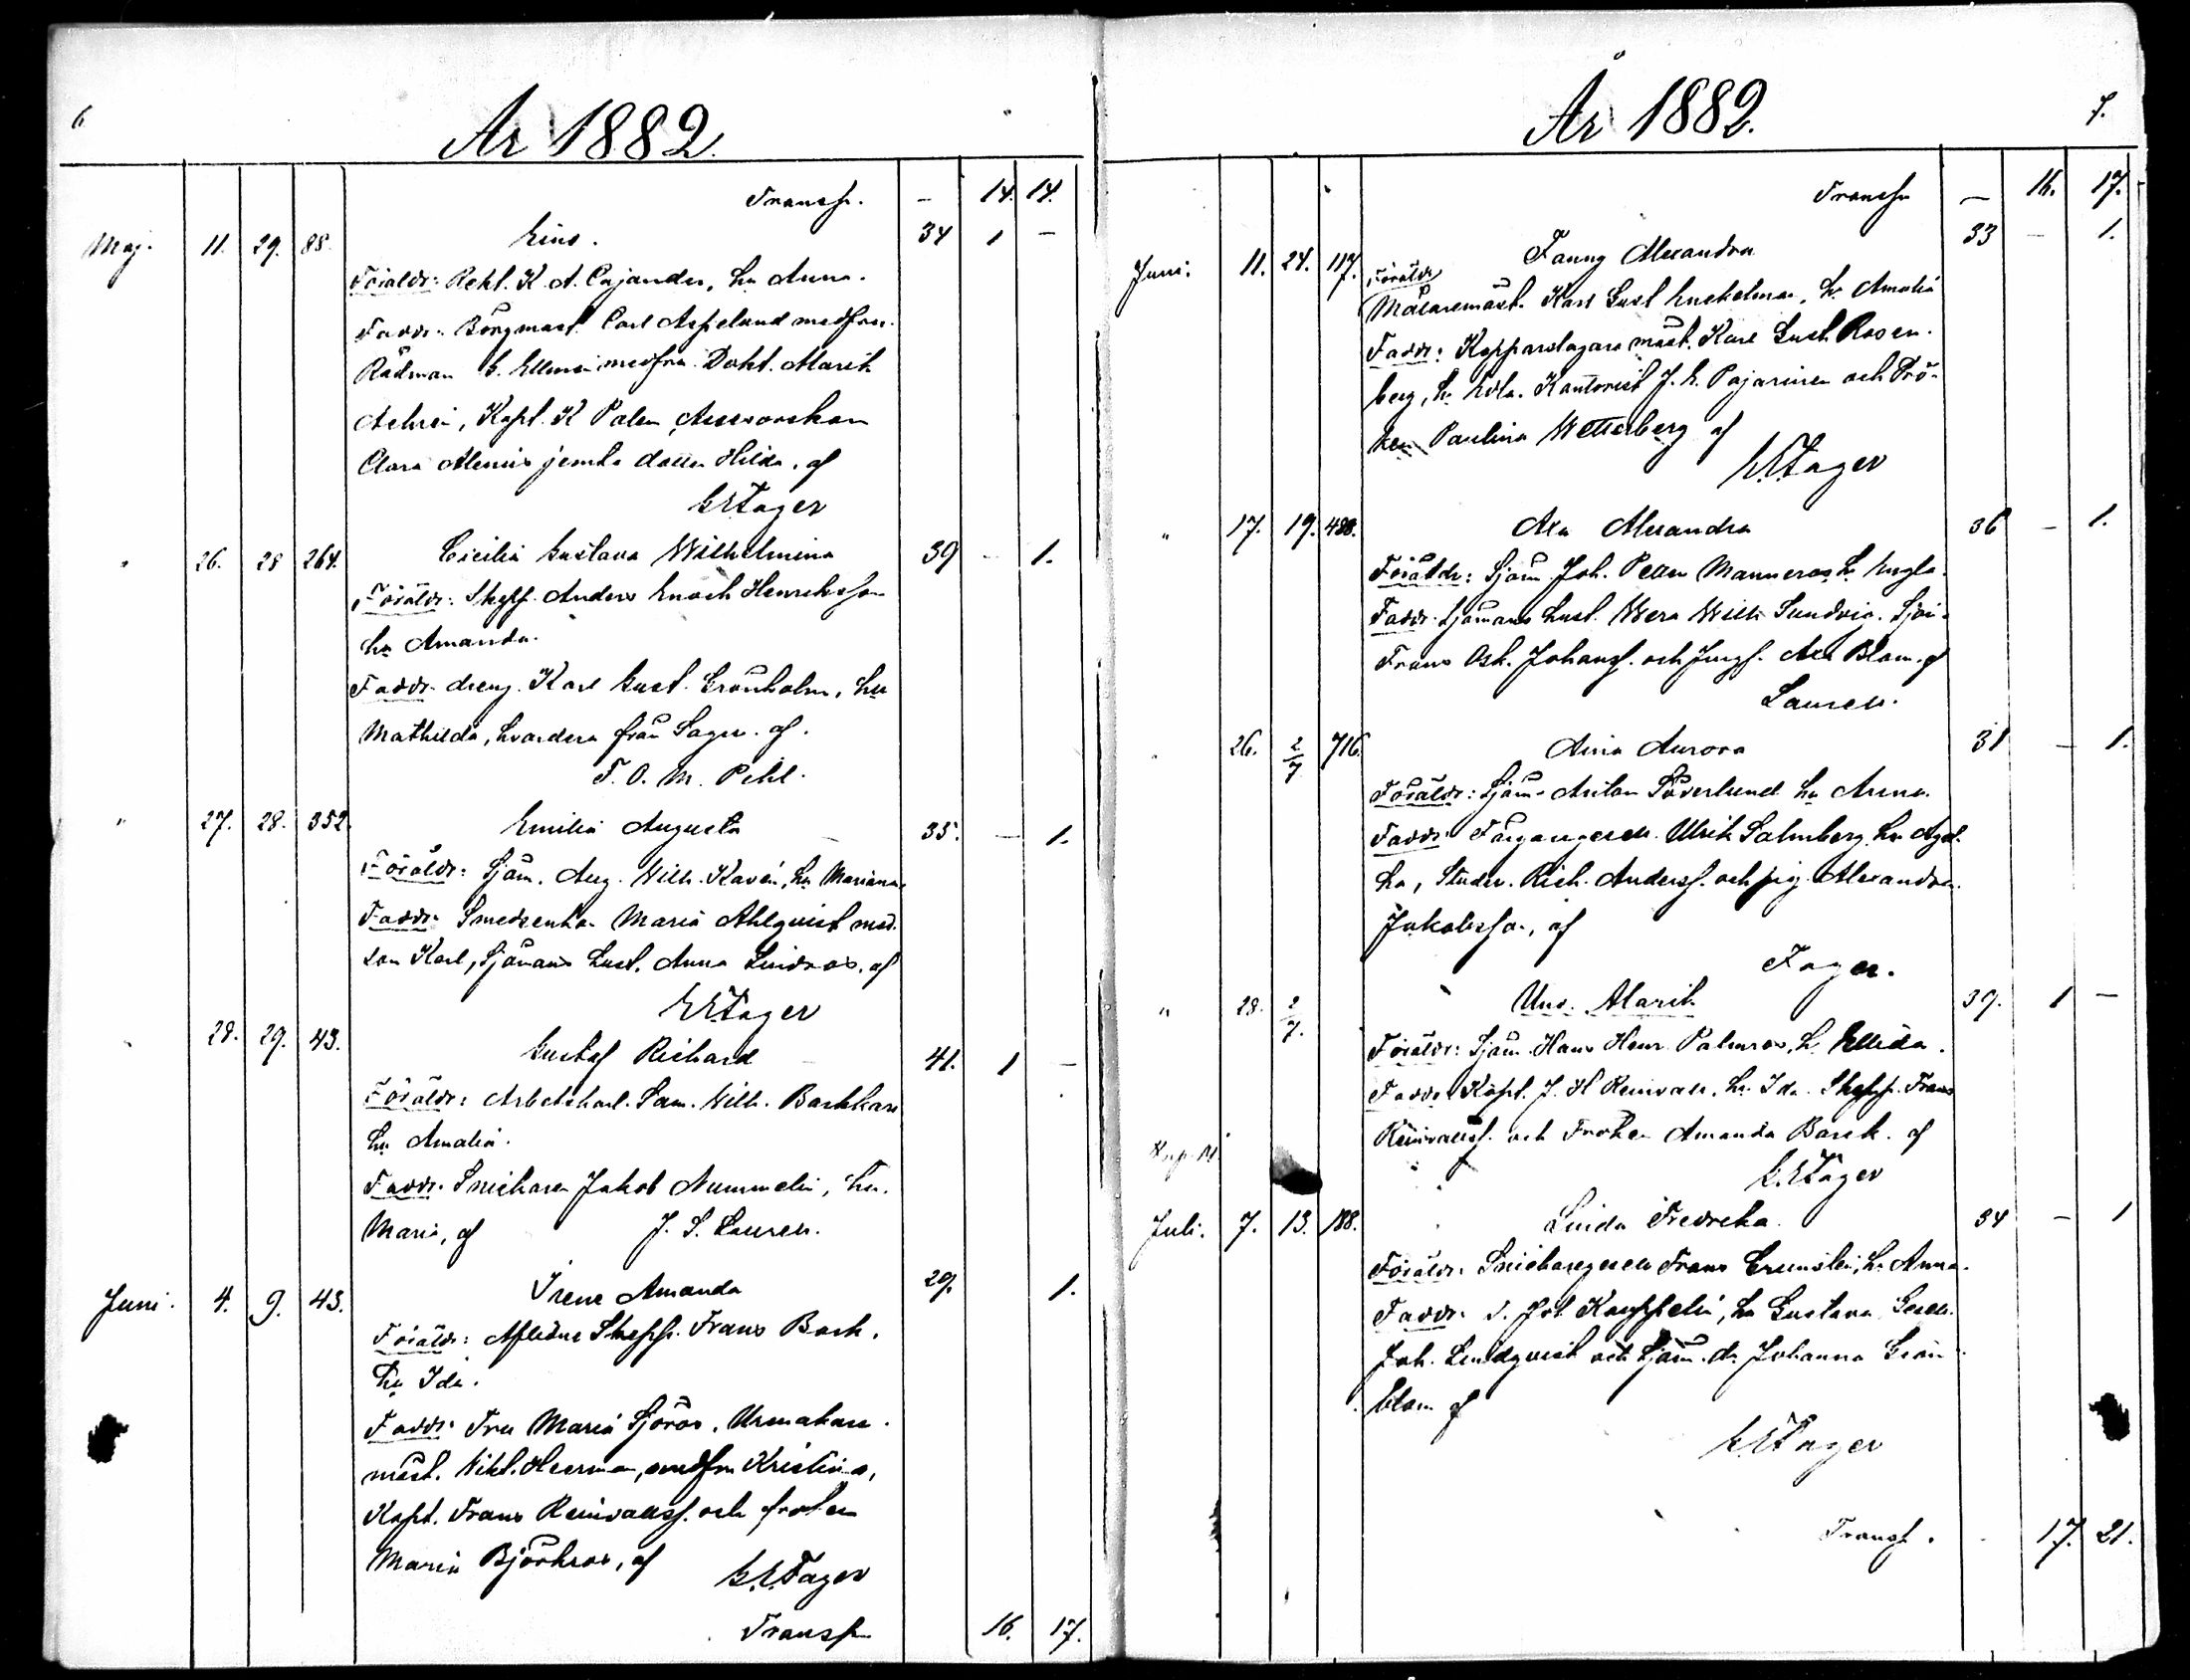 6
År 1882.
Transp. — 14. 14.
Maj. 11. 29. 88. Eino. 34 1 —
Föräldr: Rekt. K. A. Cajander, hu Anna.
Faddr: Borgmäst. Carl Aspelund med fru.
Rådman G. Ellmén med fru. Dokt. Alarik
Achrén, Kapt. K Palen
Clara Alenius jemte dotter Hilda, af
G E Fager
" 26. 28 264. Cecilia Gustava Wilhelmina 39 — 1.
Föräldr: Skepp. Anders Enoch Henriksson
hu Amanda.
Faddr. dreng. Karl Gust. Grönholm, hu
Mathilda, hvardera från Sagu. af.
F. O. M. Pihl.
" 27. 28. 352. Emilia Augusta 35. — 1.
Föräldr: Sjöm. Aug. Wilh. Kavén, hu Mariana.
Faddr: Smedsenka Maria Ahlqvist med
son Karl, Sjömans hust. Anna Lindros. af
G E Fager
" 28. 29. 43. Gustaf Richard 41. 1 —
Föräldr: Arbetskarl. Sam. Wilh. Backkars
hu Amalia.
Faddr. Snickare Jakob Nummelin, hu.
Maria, af J. S. Lauren.
Juni. 4. 9. 43. Irene Amanda 29. 1.
Föräldr: Aflidne Skepp. Frans Bask.
hu Ida.
Faddr: Fru Maria Sjöros, Urmakare
mäst. Vikt. Heerman, med fru Kristina,
Kapt. Frans Reinvallsf. och fröken
Maria Björkros, af
G. E. Fager
Transp 16. 17.
7.
År 1882.
Transp — 16. 17.
Juni. 11. 24. 117. Fanny Alexandra 33 — 1.
Föräldr
Målaremäst. Karl Gust Enckelman, h. Amalia
Faddr: Kopparslagare mäst. Karl Gust. Rosen-
berg, h. Edla. Kantorist J. E. Pajarinen och Frö-
ken Paulina Wetterberg af
G. E. Fager
" 17. 19. 488. Axa Alexandra 36 — 1.
Föräldr: Sjöm. Joh. Petter Manneros, h. Engla.
Faddr: Sjömans hust. Wera Wilh. Sundvia. Sjöm.
Frans Osk. Johansf. och Jungf. Axa Blom. af
Lauren.
26. 2/7 716. Aina Aurora 31 — 1.
Föräldr: Sjöm. Anton Söderlund hu Anna.
Faddr: Färgaregesell. Ulrik Salmberg, hu Agat-
ha, Studer. Rich. Andersf. och pig. Alexandra
Jakobsson, af
Fager.
" 28. 2/7. Uno. Alarik 39. 1 —
Föräldr: Sjöm. Hans Henr. Palmros, h. Ellida.
Faddr: Kapt. J. H Reinvall, hu Ida. Skepp. Frans
Reinvallsf. och Fröken Amanda Bask. af
G. E Fager
Juli. 7. 13. 188. Linda Fredrika 34 — 1
Föräldr: Snickaregesell Frans Grunslin, h. Anna.
Faddr: S. Joh. Kauppelin, hu Gustava. Gesell.
Joh. Lindqvist och Sjöm. d. Johanna Grön-
blom af
G E Fager
Transp. 17. 21.